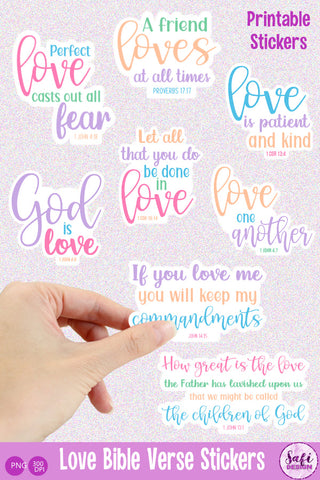 Printable
Stickers
Perfect
love
casts out all
fear
1 JOHN 4:18
A friend
loves
at all times
PROVERBS 17:17
love
is patient
and kind
1 COR 13:4
Let all
that you do
be done
in
love
1 COR 16:14
God
is
love
1 JOHN 4:8
love
one
another
1 JOHN 4:7
If you love me
you will keep my
commandments
JOHN 14:15
How great is the love
the Father has lavished upon us
that we might be called
the children of God
1 JOHN 13:1
PNG
300
DPI
Love Bible Verse Stickers
Safi
DESIGN